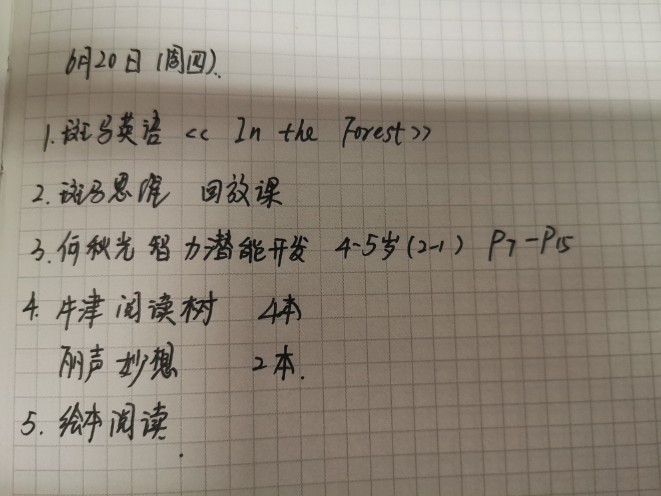 6月20日(周四).
1. 斑马英语 << In the Forest>>
2. 斑马思维 回放课
3. 何秋光 智力潜能开发 4-5岁(2-1) P7-P15
4. 牛津阅读树 4本
丽声妙想 2本.
5. 绘本阅读.